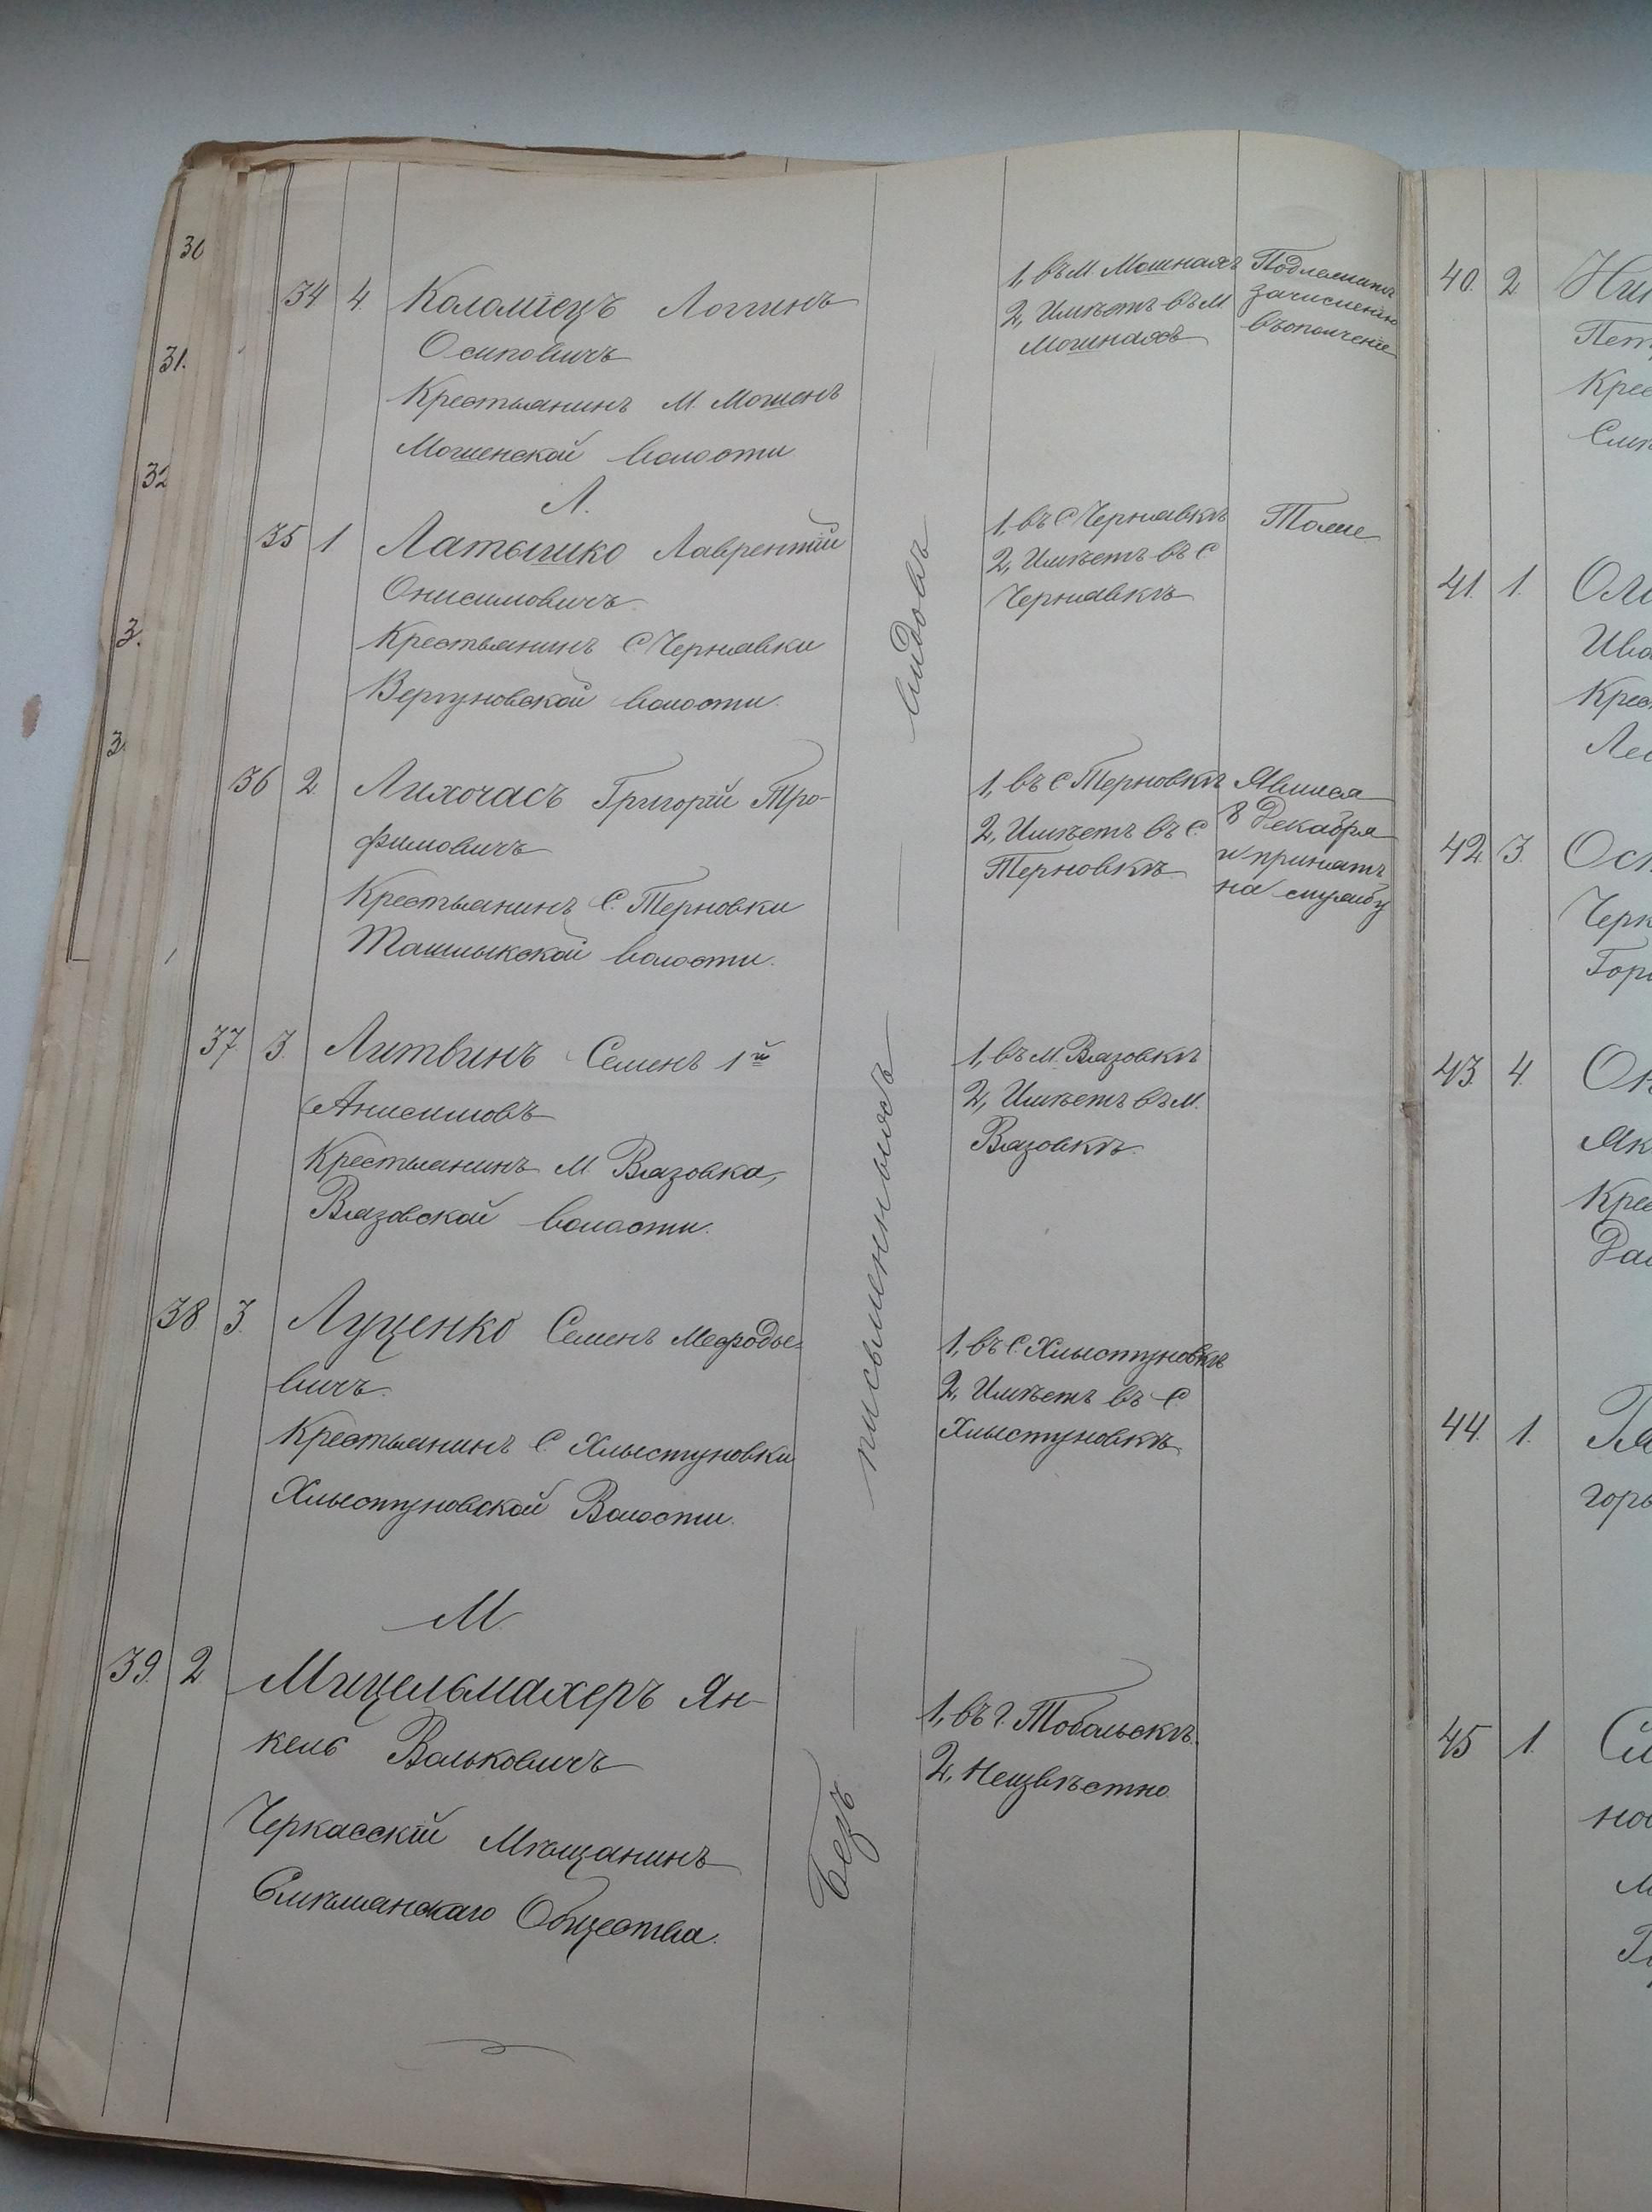 30
31.
32
3.
3.
34 4. Коломіецъ Логгинъ
Осиповичъ
Крестьянинъ М. Мошенъ
Мошенской волости
1, въ М. Мошнахъ
2, Имѣетъ въ М.
Мошнахъ
Подлежитъ
зачисленію
въ ополченіе
Л.
35 1 Латышко Лаврентій
Онисимовичъ
Крестьянинъ С. Чернявки
Вергуновской волости.
1, въ С. Чернявкѣ
2, Имѣетъ въ С.
Чернявкѣ
Тоже
36 2 Лихочасъ Григорій Тро-
фимовичъ
Крестьянинъ С. Терновки
Ташлыкской волости.
1, въ С. Терновкѣ
2, Имѣетъ въ С.
Терновкѣ
Явился
8 Декабря
и принятъ
на службу
37 3. Литвинъ Семенъ 1й
Анисимовъ
Крестьянинъ М. Вязовка,
Вязовской волости.
1, въ М. Вязовкѣ
2, Имѣетъ въ М.
Вязовкѣ.
38. 3. Луценко Семенъ Мефодье-
вичъ.
Крестьянинъ С. Хлыстуновки
Хлыстуновской Волости.
1, въ С. Хлыстуновкѣ
2, Имѣетъ въ С.
Хлыстуновкѣ
М.
39. 2. Мицельмахеръ Ян-
кель Вольковичъ
Черкасскій Мѣщанинъ
Смѣлянскаго Общества.
1, въ г. Тобольскѣ.
2, Неизвѣстно.
Безъ — письменныхъ — видовъ —
40. 2
Пет
Крес
Смѣ
41. 1.
Ива
Крес
42. 3.
Черк
Гор
43. 4.
Як
Кре
44. 1.
горь
45 1.